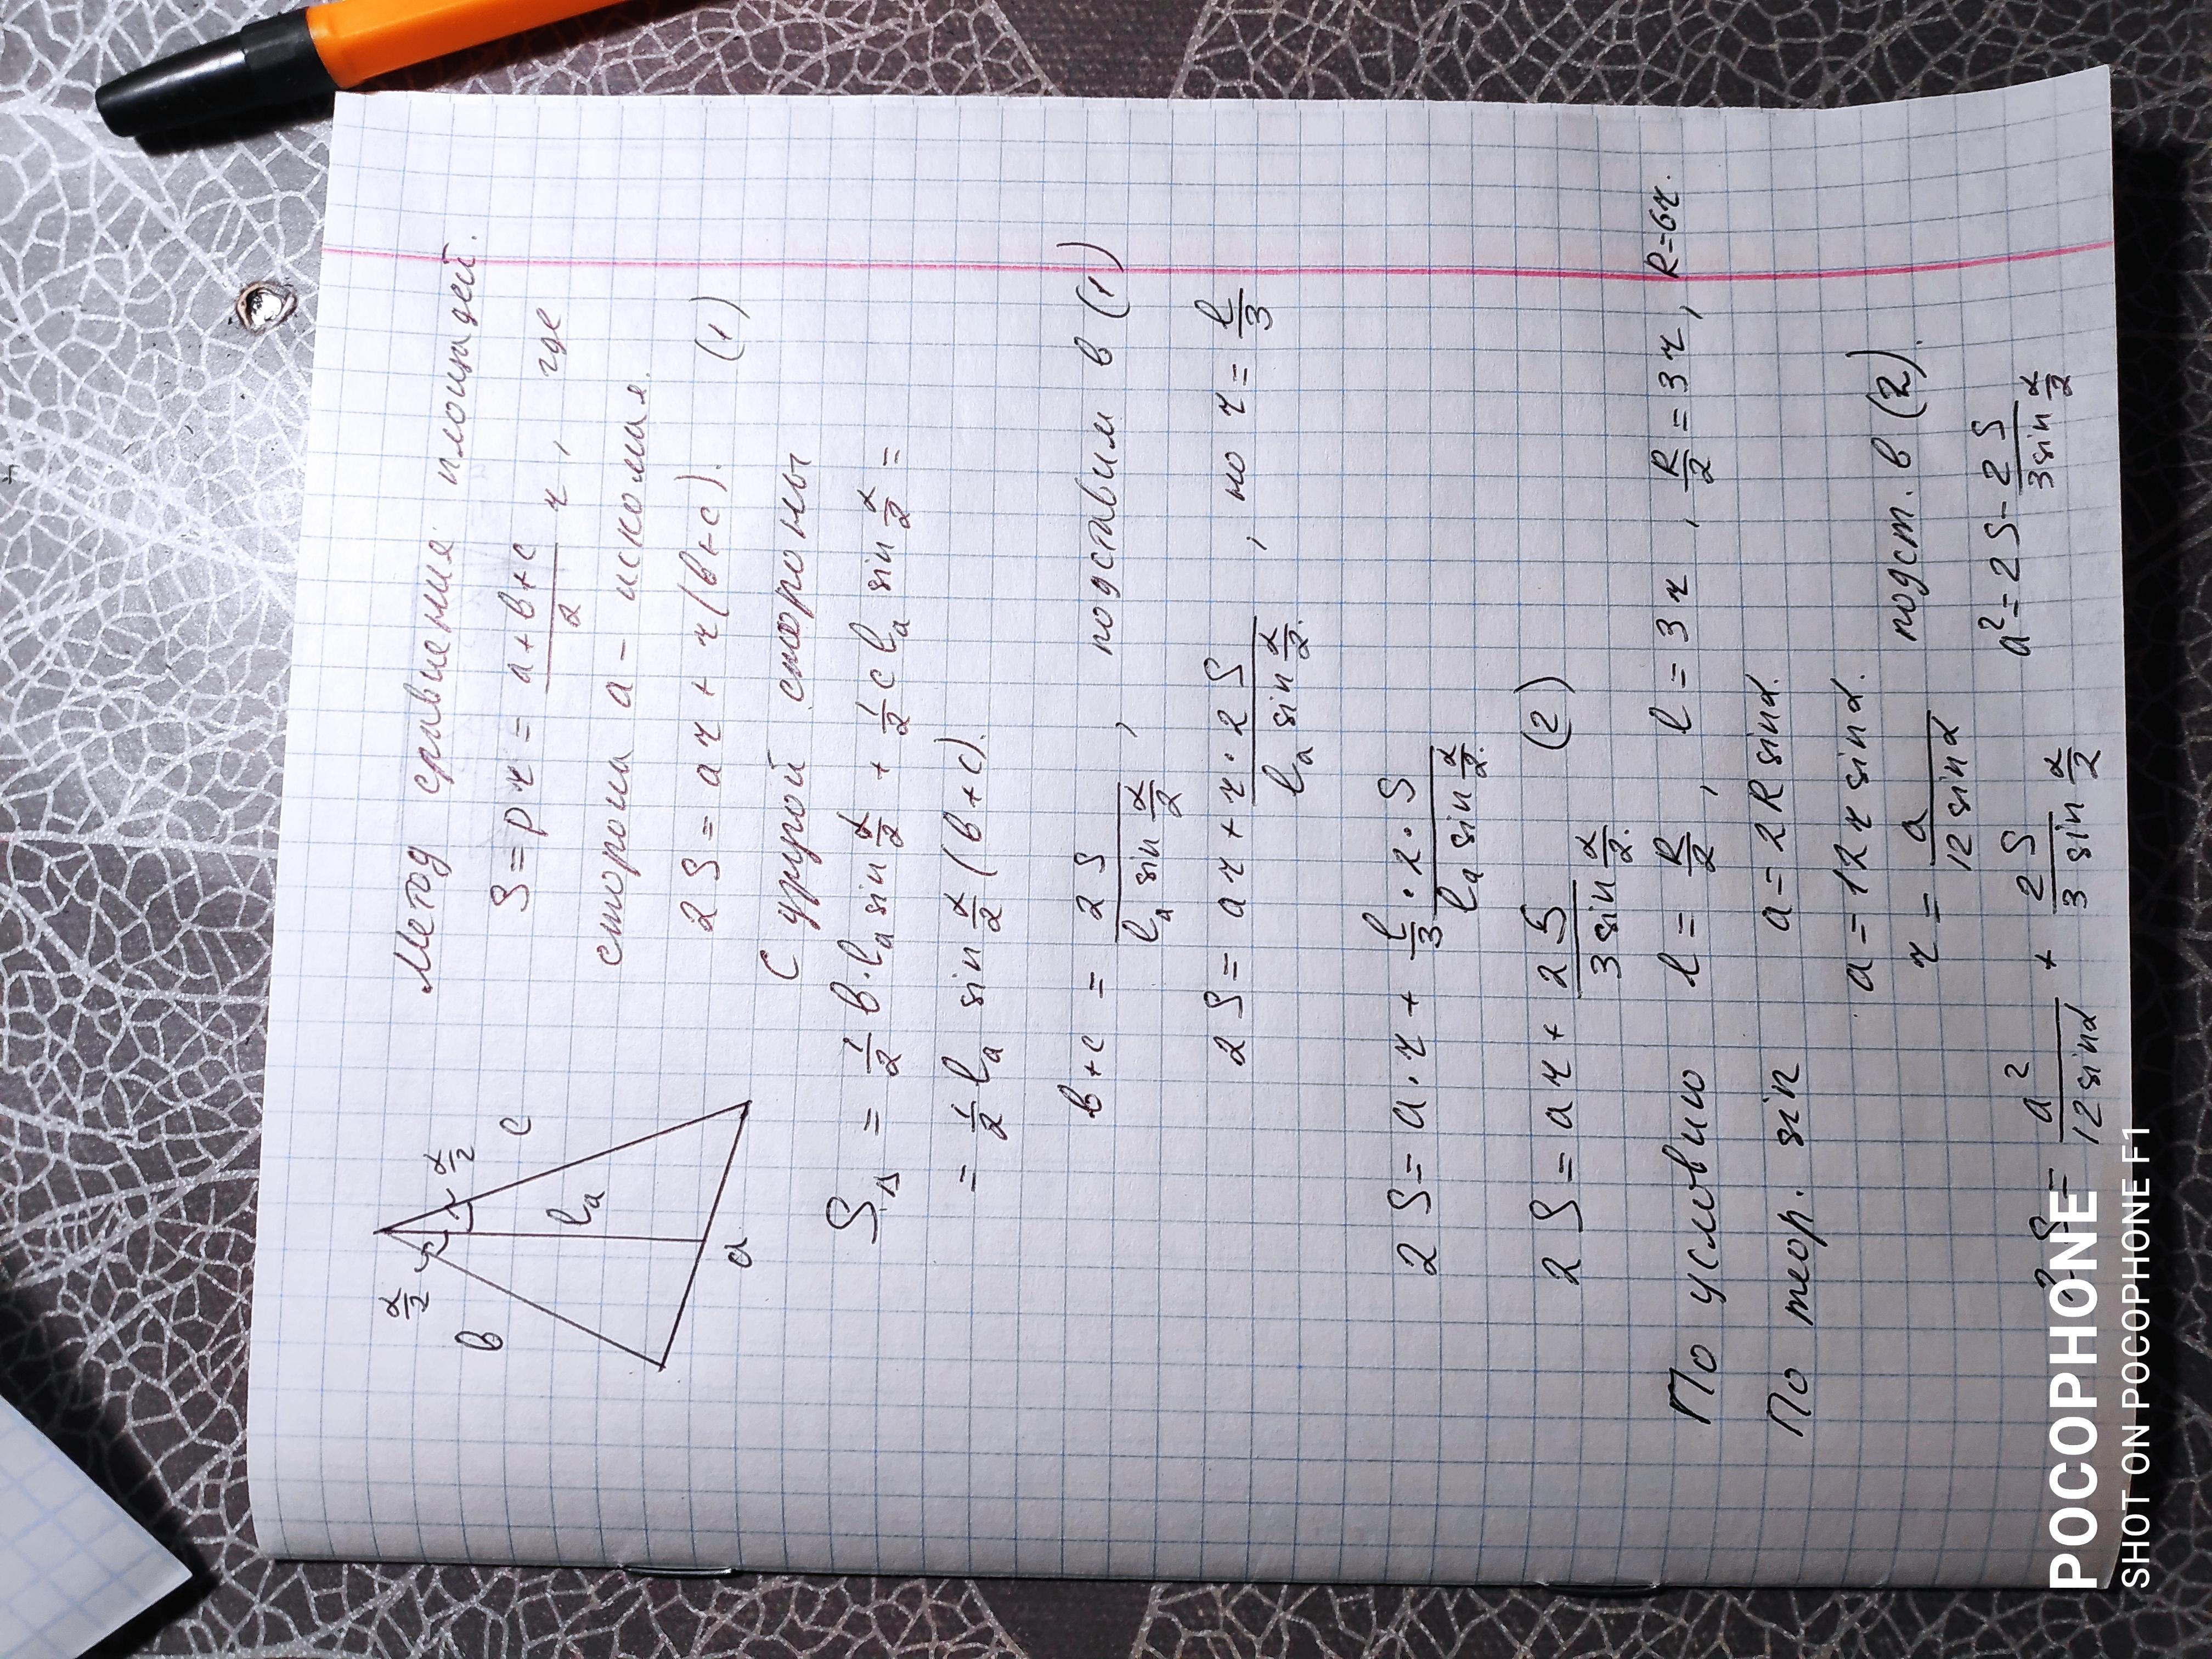 Метод сравнения площадей.
S = pr = (a+b+c)/2 r, где
сторона a - искомая.
2S = ar + r(b+c). (1)
α/2
α/2
b
c
lₐ
a
С другой стороны
S△ = 1/2 b·lₐ sin α/2 + 1/2 c lₐ sin α/2 =
= 1/2 lₐ sin α/2 (b+c).
b+c = 2S/(lₐ sin α/2), подставим в (1)
2S = ar + r·2S/(lₐ sin α/2), но r = l/3
2S = a·r + l/3 · 2·S/(lₐ sin α/2).
2S = ar + 2S/(3 sin α/2). (2)
По условию l = R/2, l = 3r, R/2 = 3r, R=6r.
По теор. sin a = 2R sinα.
a = 12r sinα.
r = a/(12 sinα) подст. в (2).
2S = a²/(12 sinα) + 2S/(3 sin α/2) a² = 2S - 2S/(3 sin α/2)
POCOPHONE
SHOT ON POCOPHONE F1